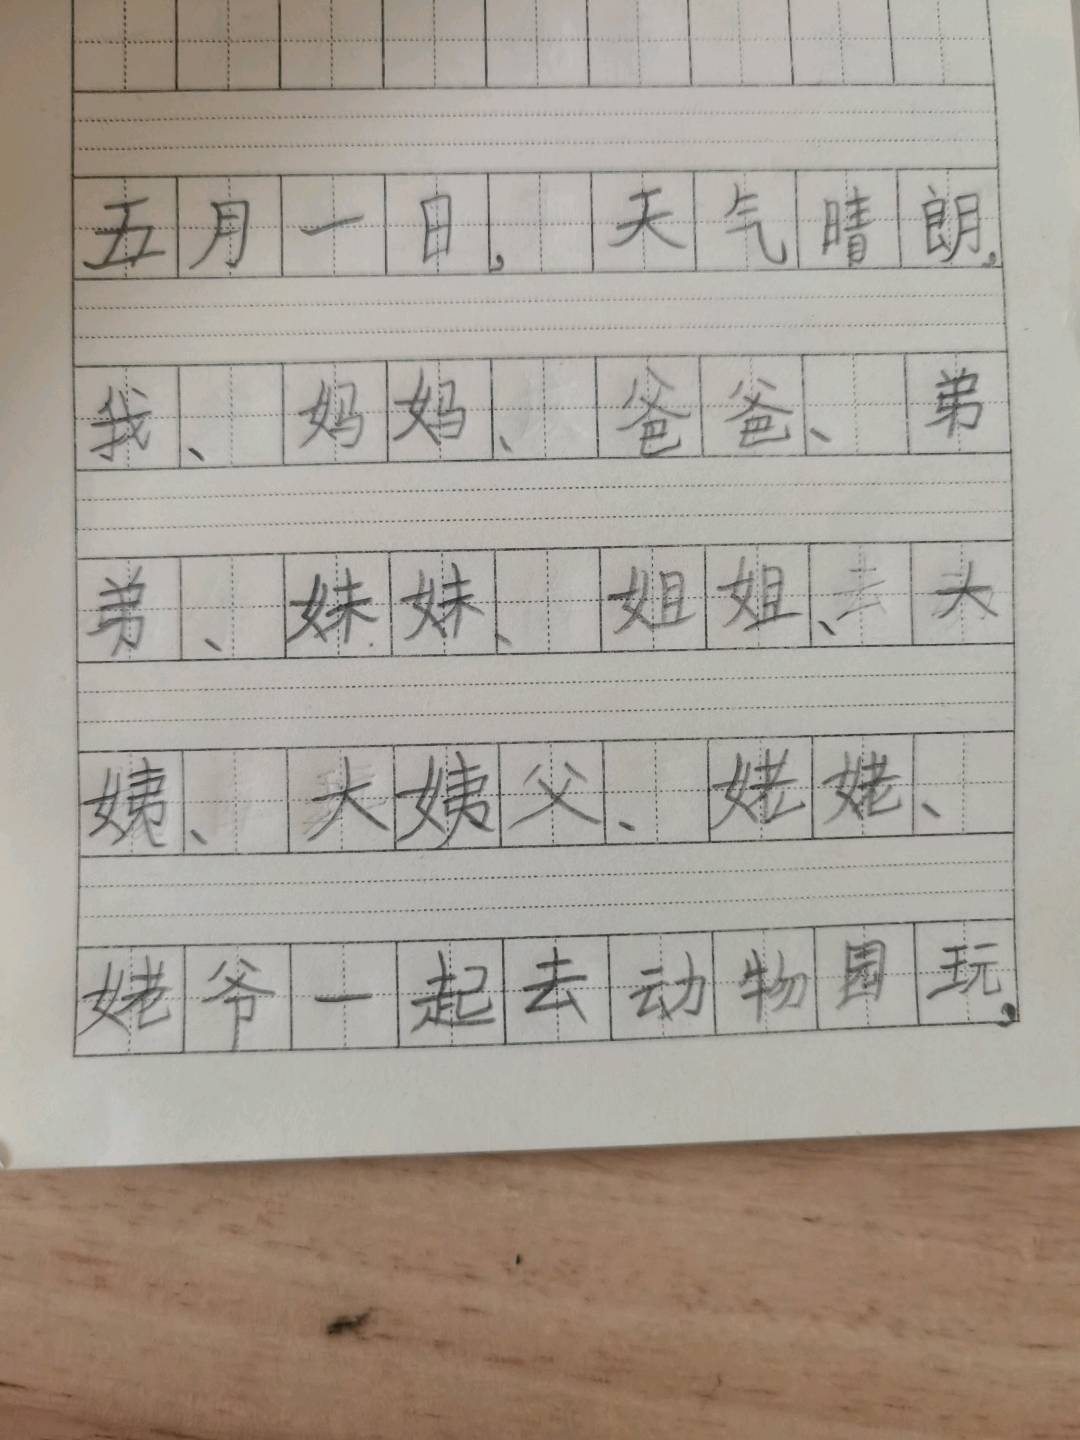 五月一日，天气晴朗，
我、妈妈、爸爸、弟
弟、妹妹、姐姐、大
姨、大姨父、姥姥、
姥爷一起去动物园玩，